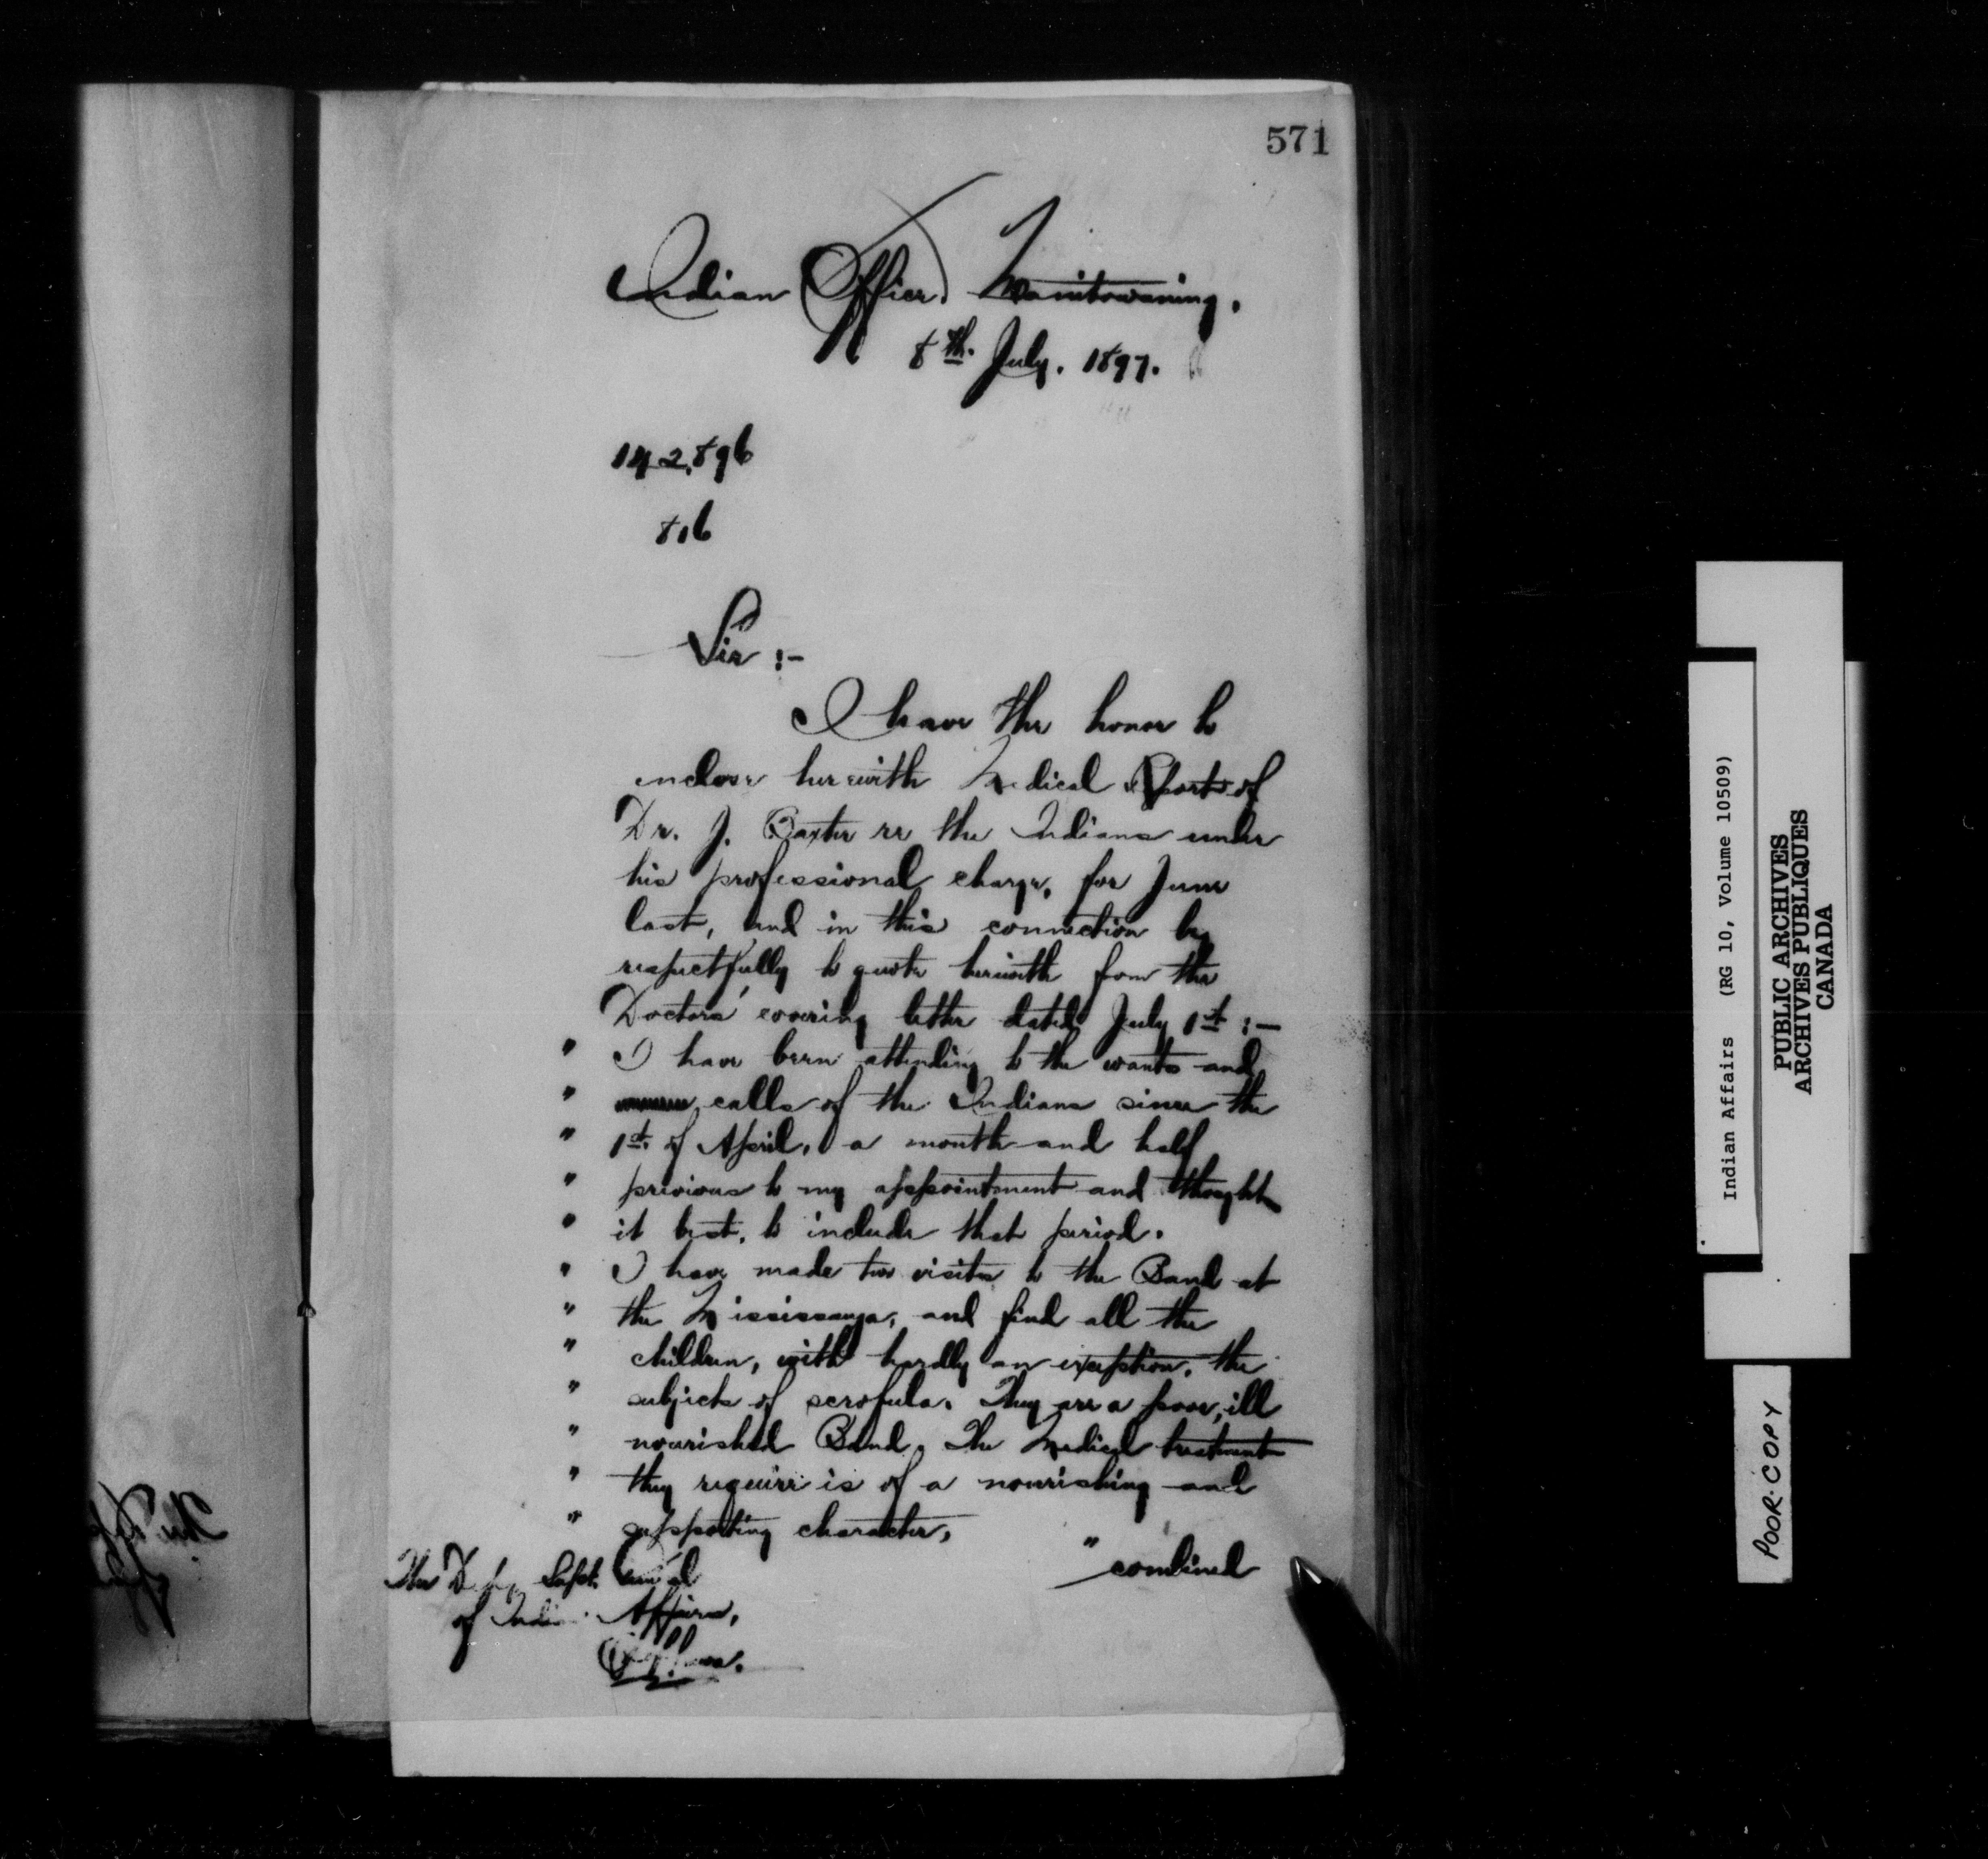 571
Indian Office, Manitowaning,
8th July, 1897.
142,896
816
Sir :-
I have the honor to
enclose herewith Medical Reports of
Dr. J. Baxter re the Indians under
his professional charge, for June
last, and in this connection beg
respectfully to quote herewith from the
Doctors' covering letter dated July 1st :-
" I have been attending to the wants and
" calls of the Indians since the
" 1st of April, a month and half
" previous to my appointment and thought
" it best, to include that period.
" I have made two visits to the Band at
" the Mississauga, and find all the
" children, with hardly an exception, the
" subjects of scrofula. They are a poor, ill
" nourished Band. The Medical treatment
" they require is of a nourishing and
" supporting character,
" combined
The Deputy Supt. Gen'al
of Indian Affairs,
Ottawa.
Indian Affairs (RG 10, Volume 10509)
PUBLIC ARCHIVES
ARCHIVES PUBLIQUES
CANADA
POOR COPY